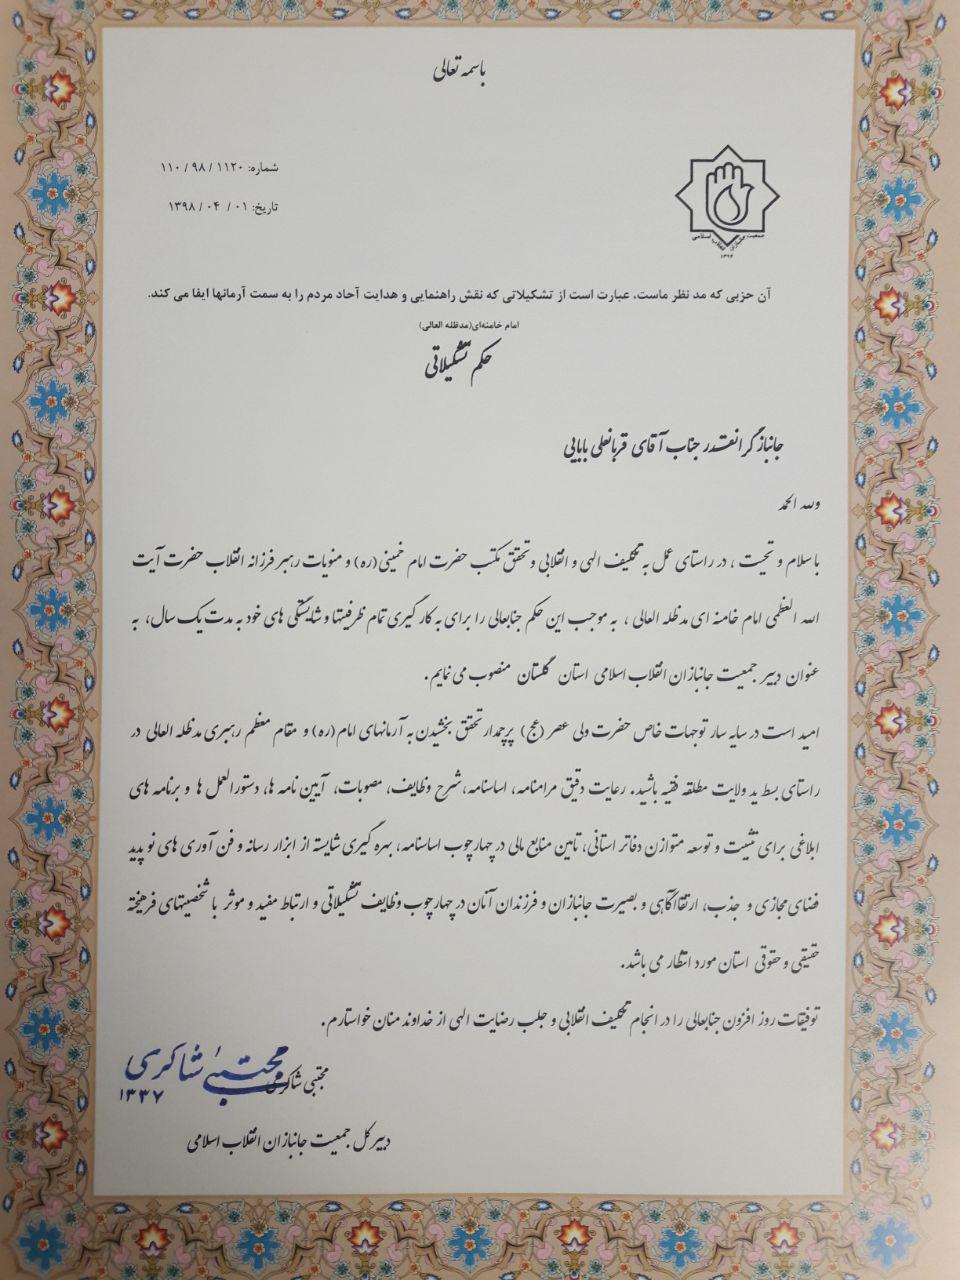 باسمه تعالی
شماره: ۱۱۲۰ / ۹۸ / ۱۱۰
تاریخ: ۰۱ / ۰۴ / ۱۳۹۸
جمعیت جانبازان انقلاب اسلامی
آن حزبی که مد نظر ماست، عبارت است از تشکیلاتی که نقش راهنمایی و هدایت آحاد مردم را به سمت آرمانها ایفا می کند.
امام خامنه‌ای(مدظله العالی)
حکم تشکیلاتی
جانباز گرانقدر جناب آقای قربانعلی بابایی
ولله الحمد
با سلام و تحیت ، در راستای عمل به تکلیف الهی و انقلابی و تحقق مکتب حضرت امام خمینی(ره) و منویات رهبر فرزانه انقلاب حضرت آیت
الله العظمی امام خامنه ای مدظله العالی ، به موجب این حکم جنابعالی را برای به کار گیری تمام ظرفیتها و شایستگی های خود به مدت یک سال، به
عنوان دبیر جمعیت جانبازان انقلاب اسلامی استان گلستان منصوب می نمایم.
امید است در سایه سار توجهات خاص حضرت ولی عصر (عج) پرچمدار تحقق بخشیدن به آرمانهای امام(ره) و مقام معظم رهبری مدظله العالی در
راستای بسط ید ولایت مطلقه فقیه باشید. رعایت دقیق مرامنامه، اساسنامه،شرح وظایف، مصوبات، آیین نامه ها، دستورالعمل ها و برنامه های
ابلاغی برای تثبیت و توسعه متوازن دفاتر استانی، تامین منابع مالی در چهارچوب اساسنامه، بهره گیری شایسته از ابزار رسانه و فن آوری های نوپدید
فضای مجازی و جذب، ارتقاآگاهی و بصیرت جانبازان و فرزندان آنان در چهارچوب وظایف تشکیلاتی و ارتباط مفید و موثر با شخصیتهای فرهیخته
حقیقی و حقوقی استان مورد انتظار می باشد.
توفیقات روز افزون جنابعالی را در انجام تکلیف انقلابی و جلب رضایت الهی از خداوند منان خواستارم.
مجتبی شاکری
۱۳۳۷
مجتبی شاکری
دبیرکل جمعیت جانبازان انقلاب اسلامی